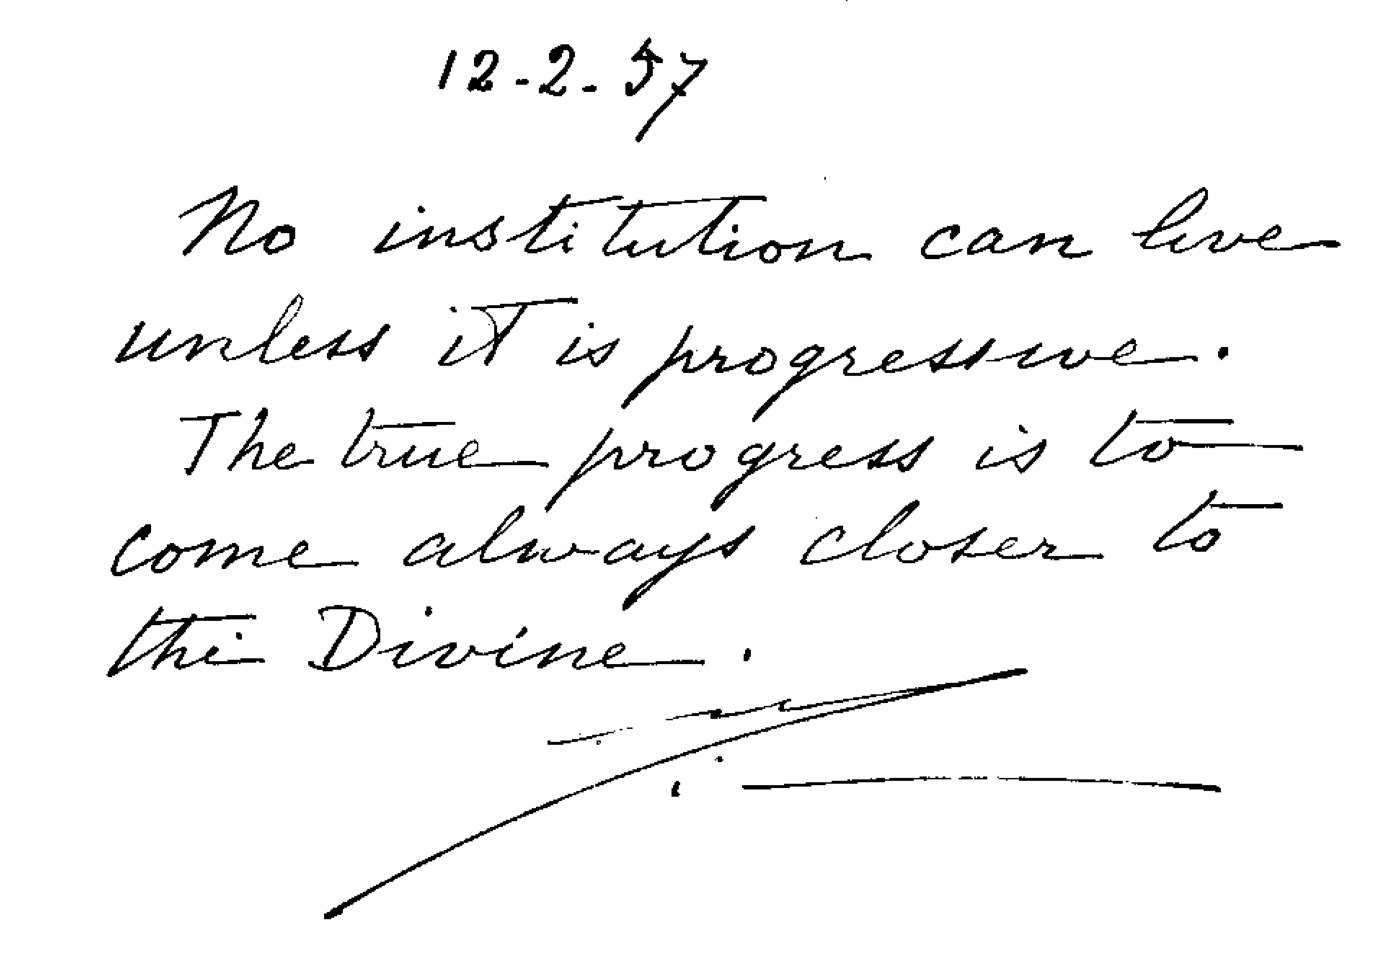 12-2-57
No institution can live
unless it is progressive.
The true progress is to
come always closer to
the Divine.